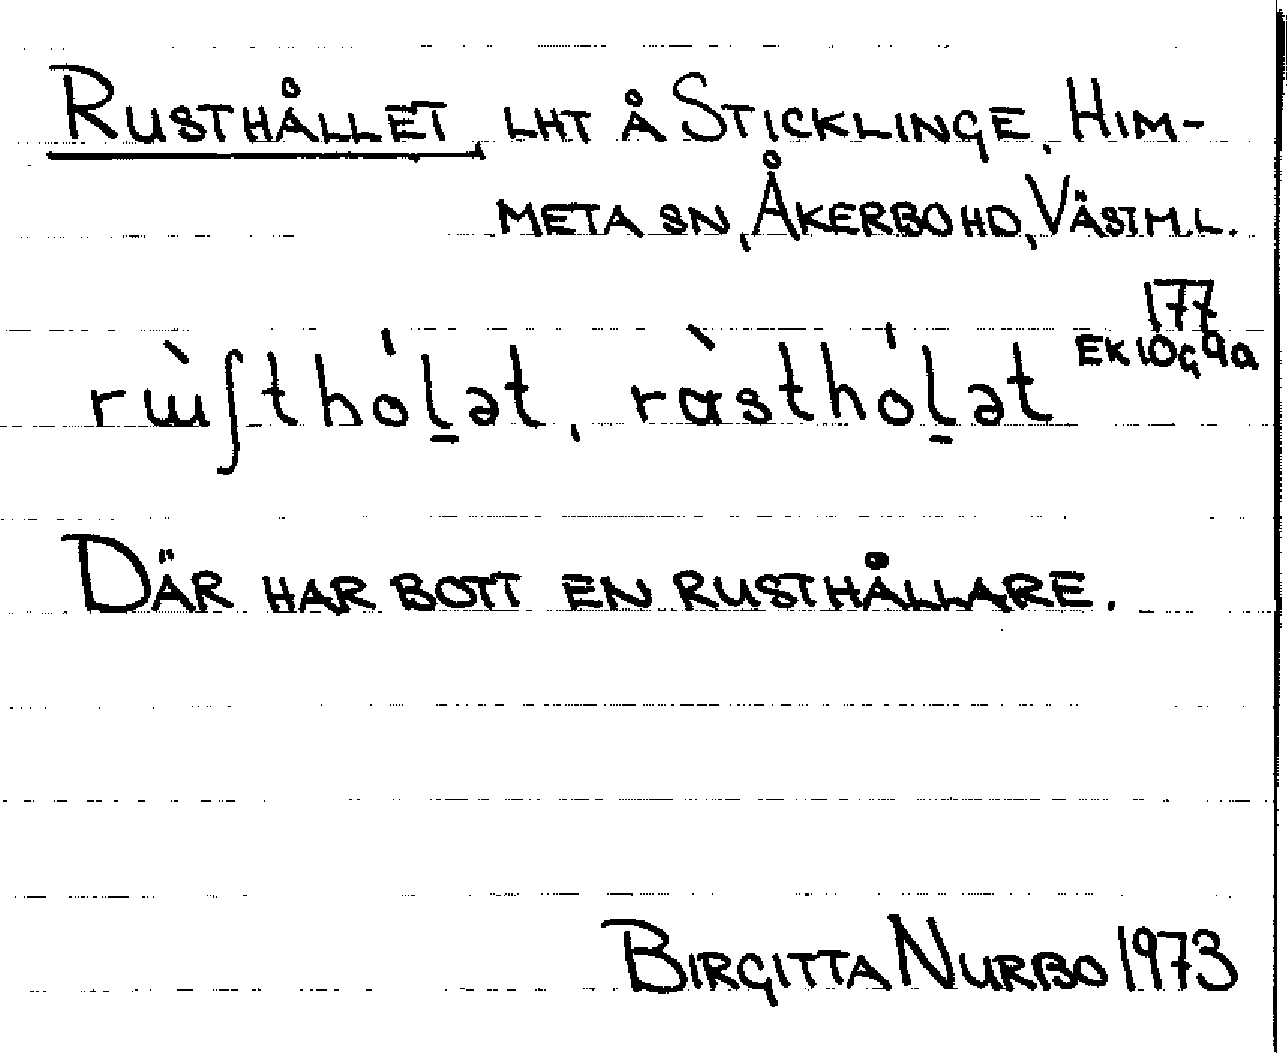 RUSTHÅLLET, LHT Å STICKLINGE, HIM-
META SN, ÅKERBO HD, VÄSTML.
177
EK 10G9a
rɯ̀ſthó̀l̠ət, ràsthól̠ət
DÄR HAR BOTT EN RUSTHÅLLARE.
BIRGITTA NURBO 1973